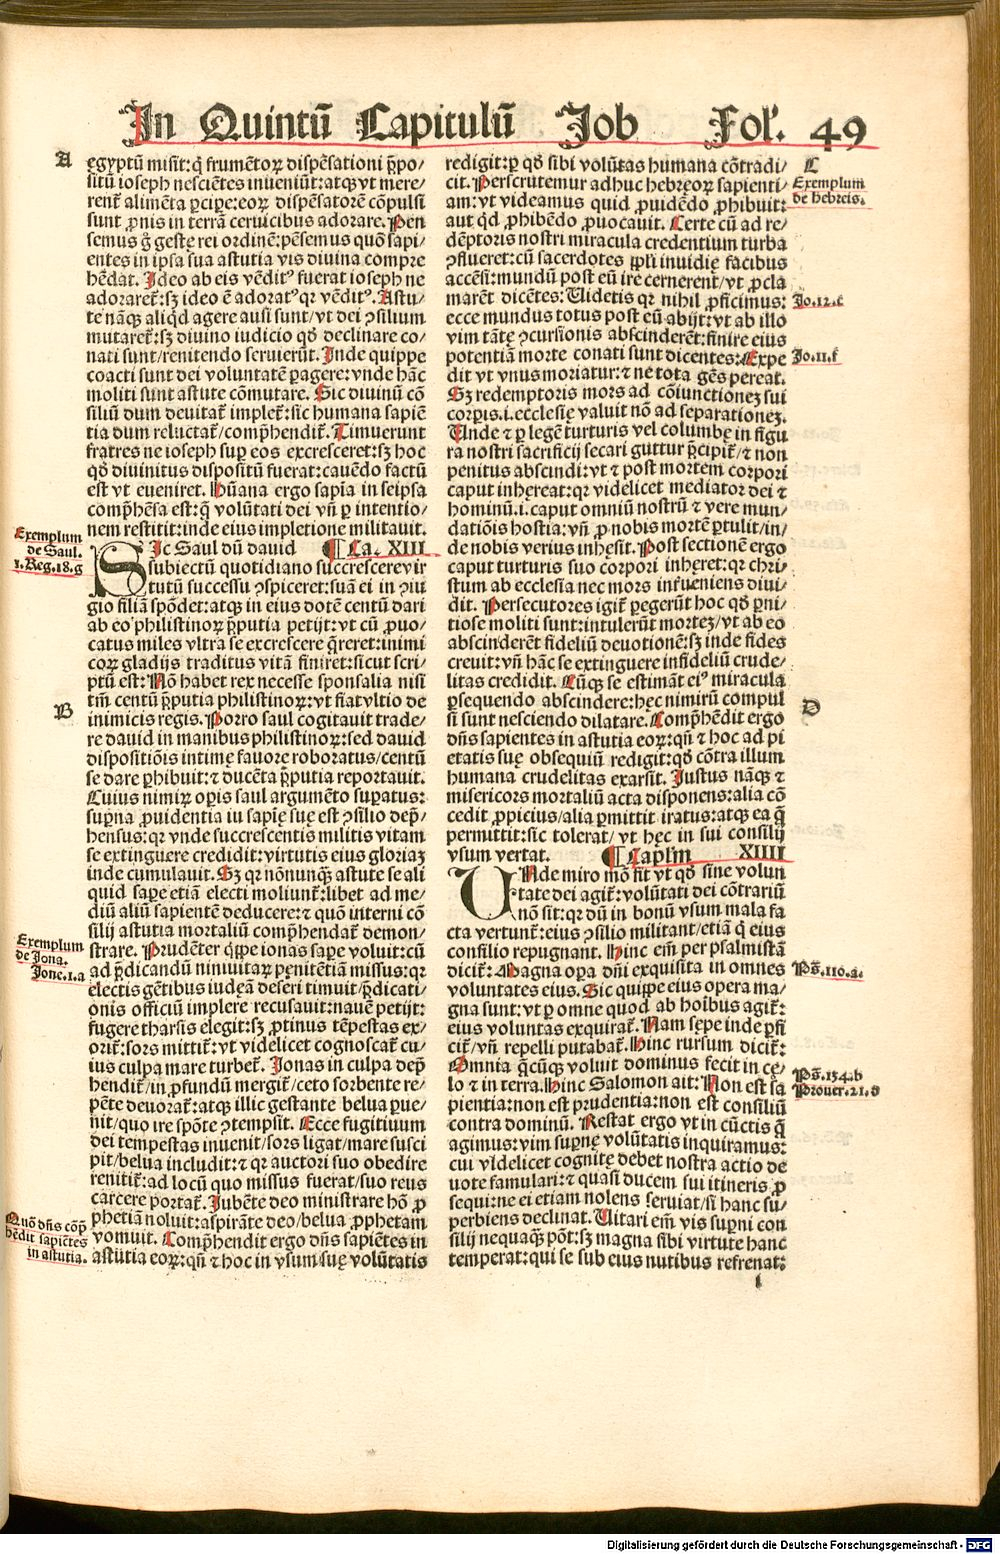 In Quintũ Capitulũ Job Fol'. 49
A
egyptũ misit: q̃ frumẽtoꝝ dispẽsationi p̃po/
sitũ ioseph nesciẽtes inueniũt: atqꝫ vt mere/
rent̃ alimẽta ꝑcipe: eoꝝ dispẽsatorẽ cõpulsi
sunt ꝓnis in terrã ceruicibus adorare. Pen
semus g̊ gestę rei ordinẽ: pẽsemus quõ sapi/
entes in ipsa sua astutia vis diuina compre
hẽdat. Ideo ab eis vẽditꝰ fuerat ioseph ne
adoraret̃: sꝫ ideo ẽ adoratꝰ qꝛ vẽditꝰ. Astu/
te nãqꝫ aliqd agere ausi sunt/ vt dei ꝯsilium
mutaret̃: sꝫ diuino iudicio qð declinare co/
nati sunt/ renitendo seruierũt. Inde quippe
coacti sunt dei voluntatẽ ꝑagere: vnde hãc
moliti sunt astute cõmutare. Sic diuinũ cõ
siliũ dum deuitat̃ implet̃: sic humana sapiẽ
tia dum reluctat̃/ comp̃hendit̃. Timuerunt
fratres ne ioseph sup̱ eos excresceret: sꝫ hoc
qð diuinitus dispositũ fuerat: cauẽdo factũ
est vt eueniret. Hũana ergo sapĩa in seipsa
comp̃hẽsa est: q̃ volũtati dei vñ ꝑ intentio/
nem restitit: inde eius impletione militauit.
Exemplum
de Saul.
1. Reg. 18. g
¶ Ca. XIII
SIc Saul dũ dauid
subiectũ quotidiano succrescerevir
tutũ successu ꝯspiceret: suã ei in ꝯiu
gio filiã spõdet: atqꝫ in eius dotẽ centũ dari
ab eo philistinoꝝ p̃putia petijt: vt cũ ꝓuo/
catus miles vltra se excrescere q̃reret: inimi
coꝝ gladijs traditus vitã finiret: sicut scri/
ptũ est: Nõ habet rex necesse sponsalia nisi
tm̃ centũ p̃putia philistinoꝝ: vt fiatvltio de
B
inimicis regis. Porro saul cogitauit trade/
re dauid in manibus philistinoꝝ: sed dauid
dispositiõis intimę fauore roboratus/ centũ
se dare ꝑhibuit: ⁊ ducẽta p̃putia reportauit.
Cuius nimiꝝ opis saul argumẽto sup̱atus:
sup̱na ꝓuidentia iu sapię suę est ꝯsilio dep̃/
hensus: qꝛ vnde succrescentis militis vitam
se extinguere credidit: virtutis eius gloriaꝫ
inde cumulauit. Sꝫ qꝛ nõnunqꝫ astute se ali
quid sape etiã electi moliunt̃: libet ad me/
diũ aliũ sapientẽ deducere: ⁊ quõ interni cõ
silij astutia mortaliũ comp̃hendat̃ demon/
Exemplum
de Jona.
Jone. 1. a
strare. Prudẽter q̃ppe ionas sape voluit: cũ
ad p̃dicandũ niniuitaꝝ pęnitẽtiã missus: qꝛ
electis gẽtibus iudęã deseri timuit/ p̃dicati/
onis officiũ implere recusauit: nauẽ petijt:
fugere tharsis elegit: sꝫ ꝓtinus tẽpestas ex/
orit̃: sors mittit̃: vt videlicet cognoscat̃ cu/
ius culpa mare turbet̃. Jonas in culpa dep̃
hendit̃/ in ꝓfundũ mergit̃/ ceto sorbente re/
pẽte deuorat̃: atqꝫ illic gestante belua ꝑue/
nit/ quo ire spõte ꝯtempsit. Ecce fugitiuum
dei tempestas inuenit/ sors ligat/ mare susci
pit/ belua includit: ⁊ qꝛ auctori suo obedire
renitit̃: ad locũ quo missus fuerat/ suo reus
carcere portat̃. Jubẽte deo ministrare hõ ꝓ
Quõ dñs cõp̃
hẽdit sapiẽtes
in astutia.
phetiã noluit: aspirãte deo/ belua ꝓphetam
vomuit. Comp̃hendit ergo dñs sapiẽtes in
astutia eoꝝ: qñ ⁊ hoc in vsum suę volũtatis
redigit: ꝑ qð sibi volũtas humana cõtradi/
C
cit. Perscrutemur adhuc hebręoꝝ sapienti/
Exemplum
de hebreis.
am: vt videamus quid ꝓuidẽdo ꝓhibuit:
aut qd ꝓhibẽdo ꝓuocauit. Certe cũ ad re/
dẽptoris nostri miracula credentium turba
ꝯflueret: cũ sacerdotes ppľi inuidię facibus
accẽsi: mundũ post eũ ire cernerent/ vt ꝓcla
marẽt dicẽtes: Uidetis qꝛ nihil ꝓficimus:
Jo. 12. c
ecce mundus totus post eũ abijt: vt ab illo
vim tãtę ꝯcursionis abscinderẽt: finire eius
potentiã morte conati sunt dicentes: Expe
Jo. 11. f
dit vt vnus moriatur: ⁊ ne tota gẽs pereat.
Sꝫ redemptoris mors ad cõiunctioneꝫ sui
corpis. i. ecclesię valuit nõ ad separationeꝫ.
Unde ⁊ ꝑ legẽ turturis vel columbę in figu
ra nostri sacrificij secari guttur p̃cipit̃/ ⁊ non
penitus abscindi: vt ⁊ post mortem corpori
caput inhęreat: qꝛ videlicet mediator dei ⁊
hominũ. i. caput omniũ nostrũ ⁊ vere mun/
datiõis hostia: vñ ꝓ nobis mortẽ ꝑtulit/ in/
de nobis verius inhęsit. Post sectionẽ ergo
caput turturis suo corpori inhęret: qꝛ chri/
stum ab ecclesia nec mors interueniens diui/
dit. Persecutores igit̃ ꝑegerũt hoc qð ꝑni/
tiose moliti sunt: intulerũt morteꝫ/ vt ab eo
abscinderẽt fideliũ deuotionẽ: sꝫ inde fides
creuit: vñ hãc se extinguere infideliũ crude/
litas credidit. Cũqꝫ se estimãt eiꝰ miracula
ꝑsequendo abscindere: hęc nimirũ compul
D
si sunt nesciendo dilatare. Comp̃hẽdit ergo
dñs sapientes in astutia eoꝝ: qñ ⁊ hoc ad pi
etatis suę obsequiũ redigit: qð cõtra illum
humana crudelitas exarsit. Justus nãqꝫ ⁊
misericors mortaliũ acta disponens: alia cõ
cedit ꝓpicius/ alia ꝑmittit iratus: atqꝫ ea q̃
permittit: sic tolerat/ vt hęc in sui consilij
vsum vertat. ¶ Caplm XIIII
UNde miro mõ fit vt qð sine volun
tate dei agit̃: volũtati dei cõtrariũ
nõ sit: qꝛ dũ in bonũ vsum mala fa
cta vertunt̃: eius ꝯsilio militant/ etiã q̃ eius
consilio repugnant. Hinc em̃ per psalmistã
dicit̃: Magna oꝑa dñi exquisita in omnes
Ps̃. 110. a.
voluntates eius. Sic quippe eius opera ma/
gna sunt: vt ꝑ omne quod ab hoĩbus agit̃:
eius voluntas exquirat̃. Nam sepe inde ꝑfi
cit̃/ vñ repelli putabat̃. Hinc rursum dicit̃:
Omnia q̃cũqꝫ voluit dominus fecit in cę/
Ps̃. 134. b
lo ⁊ in terra. Hinc Salomon ait: Non est sa
Prouer. 21. d
pientia: non est prudentia: non est consiliũ
contra dominũ. Restat ergo vt in cũctis q̃
agimus: vim sup̱nę volũtatis inquiramus:
cui videlicet cognitę debet nostra actio de
uote famulari: ⁊ quasi ducem sui itineris ꝓ
sequi: ne ei etiam nolens seruiat/ si hanc su/
perbiens declinat. Uitari em̃ vis sup̱ni con
silij nequaqꝫ põt: sꝫ magna sibi virtute hanc
temperat: qui se sub eius nutibus refrenat:
l
Digitalisierung gefördert durch die Deutsche Forschungsgemeinschaft - DFG